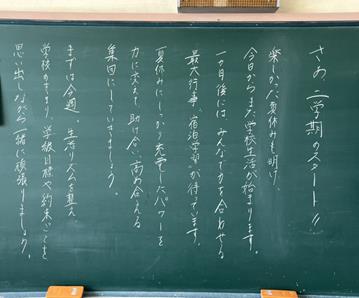 さあ、二学期のスタート!!
楽しかった夏休みも明け、
今日からまた学校生活が始まります。
一か月後には、みんなで力を合わせる
最大行事、宿泊学習が待っています。
夏休みにしっかり充電したパワーを
力に変えて、助け合い高め合える
集団にしていきましょう。
まずは今週、生活リズムを整え
学校のきまり、学級目標や約束ごとを
思い出しながら一緒に頑張りましょう。